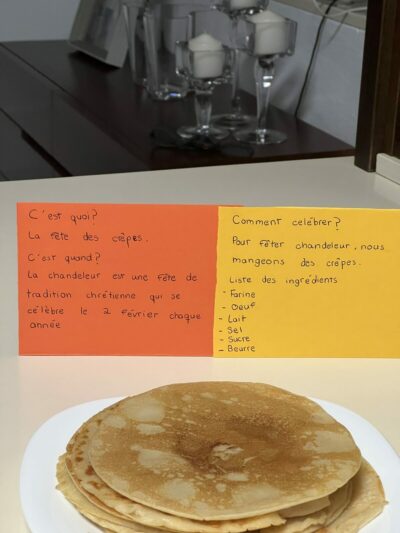 C'est quoi?
La fête des crêpes.
C'est quand?
La chandeleur est une fête de
tradition chrétienne qui se
célèbre le 2 février chaque
année
Comment celébrer?
Pour fêter chandeleur, nous
mangeons des crêpes.
Liste des ingrédients
- Farine
- Oeuf
- Lait
- Sel
- Sucre
- Beurre